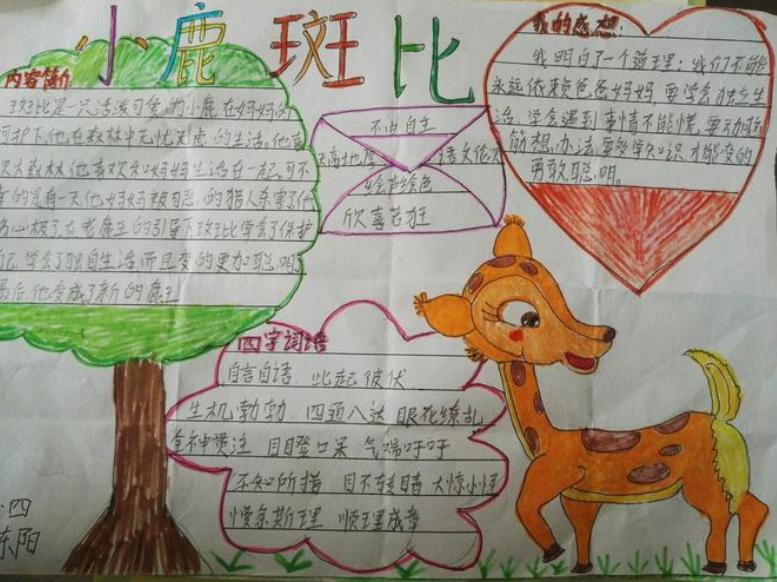 小鹿斑比
内容简介:
班比是一只活泼可爱的小鹿在妈妈的
呵护下他在森林中无忧无虑的生活。他喜
欢大森林他喜欢和妈妈生活在一起。可不
幸的是有一天他妈妈被可恶的猎人杀害了他
伤心极了在老鹿王的引导下班比学会了保护
自己,学会了独自生活而且变的更加聪明了
最后他变成了新的鹿王
不由自主
绘声绘色
欣喜若狂
我的感想:
我明白了一个道理:我们不能
永远依赖爸爸妈妈,要学会独立生
活,学会遇到事情不能慌,要动脑
筋想办法,要多学知识才能变的
勇敢聪明。
四字词语
自言自语 此起彼伏
生机勃勃 四通八达 眼花缭乱
全神贯注 目瞪口呆 气喘吁吁
不知所措 目不转睛 大惊小怪
慢条斯理 顺理成章
四
东阳